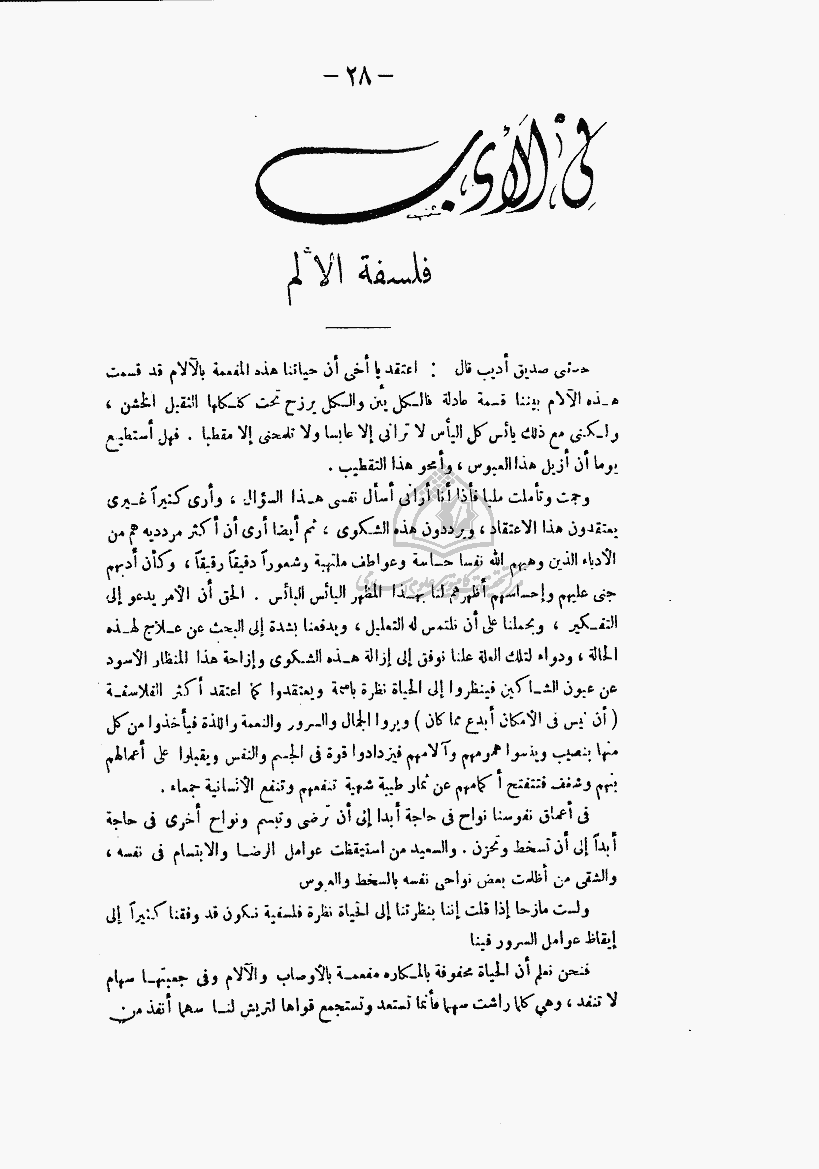 — ٢٨ —
في الأدب
فلسفة الألم
حدثنى صديق أديب قال : اعتقد يا أخى أن حياتنا هذه المفعمة بالآلام قد قسمت
هذه الآلام بيننا قسمة عادلة فالكل يئن والكل يرزح تحت كلكلها الثقيل الخشن ،
ولكنى مع ذلك يائس كل اليأس لا ترانى إلا عابسا ولا تلمحنى إلا مقطبا . فهل أستطيع
يوما أن أزيل هذا العبوس ، وأمحو هذا التقطيب .
وجمت وتأملت مليا فأذا أنا أرانى أسأل نفسى هذا السؤال ، وأرى كثيراً غيرى
يعتقدون هذا الاعتقاد ، ويرددون هذه الشكوى ، ثم أيضا أرى أن أكثر مردديه هم من
الأدباء الذين وهبهم الله نفسا حساسة وعواطف ملتهبة وشعوراً دقيقاً رقيقاً ، وكأن أدبهم
جنى عليهم وإحساسهم أظهرهم لنا بهذا المظهر اليائس البائس . الحق أن الأمر يدعو إلى
التفكير ، ويحملنا على أن نلتمس له التعليل ، ويدفعنا بشدة إلى البحث عن علاج لهذه
الحالة ، ودواء لتلك العلة علنا نوفق إلى إزالة هذه الشكوى وإزاحة هذا المنظار الأسود
عن عيون الشاكين فينظروا إلى الحياة نظرة باسمة ويعتقدوا كما اعتقد أكثر الفلاسفة
( أن ليس فى الامكان أبدع مما كان ) ويروا الجمال والسرور والنعمة واللذة فيأخذوا من كل
منها بنصيب وينسوا همومهم وآلامهم فيزدادوا قوة فى الجسم والنفس ويقبلوا على أعمالهم
بنهم وشغف فتتفتح أكمامهم عن ثمار طيبة شهية تنفعهم وتنفع الأنسانية جمعاء .
فى أعماق نفوسنا نواح فى حاجة أبدا إلى أن ترضى وتبسم ونواح أخرى فى حاجة
أبداً إلى أن تسخط وتحزن . والسعيد من استيقظت عوامل الرضا والابتسام فى نفسه ،
والشقى من أظلمت بعض نواحى نفسه بالسخط والعبوس
ولست مازحا إذا قلت إننا بنظرتنا إلى الحياة نظرة فلسفية نكون قد وفقنا كثيراً إلى
إيقاظ عوامل السرور فينا
فنحن نعلم أن الحياة محفوفة بالمكاره مفعمة بالأوصاب والآلام وفى جعبتها سهام
لا تنفد ، وهى كلما راشت سهما فأنما تستعد وتستجمع قواها لتريش لنا سهما أنفذ من